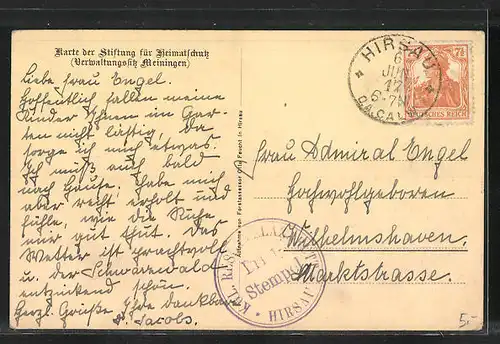 Karte der Stiftung für Heimatschutz
(Verwaltungssitz Meiningen)
Liebe Frau Engel.
Hoffentlich fallen meine
Kinder Ihnen im Gar-
ten nicht lästig, da
sorge ich mich etwas.
Ich muß auch bald
nach Hause. Habe mich
aber recht erholt und
fühle, wie die Ruhe
mir gut thut. Das
Wetter ist prachtvoll
u. der Schwarzwald
entzückend schön.
Herzl. Grüße. Ihre dankbare
Jacobs.
HIRSAU
6
JUN
17
6-7N
O.A. CALW
7½
DEUTSCHES REICH
Frau Admiral Engel
Hochwohlgeboren
Wilhelmshaven.
Marktstrasse.
Stempel
HIRSAU
5,-